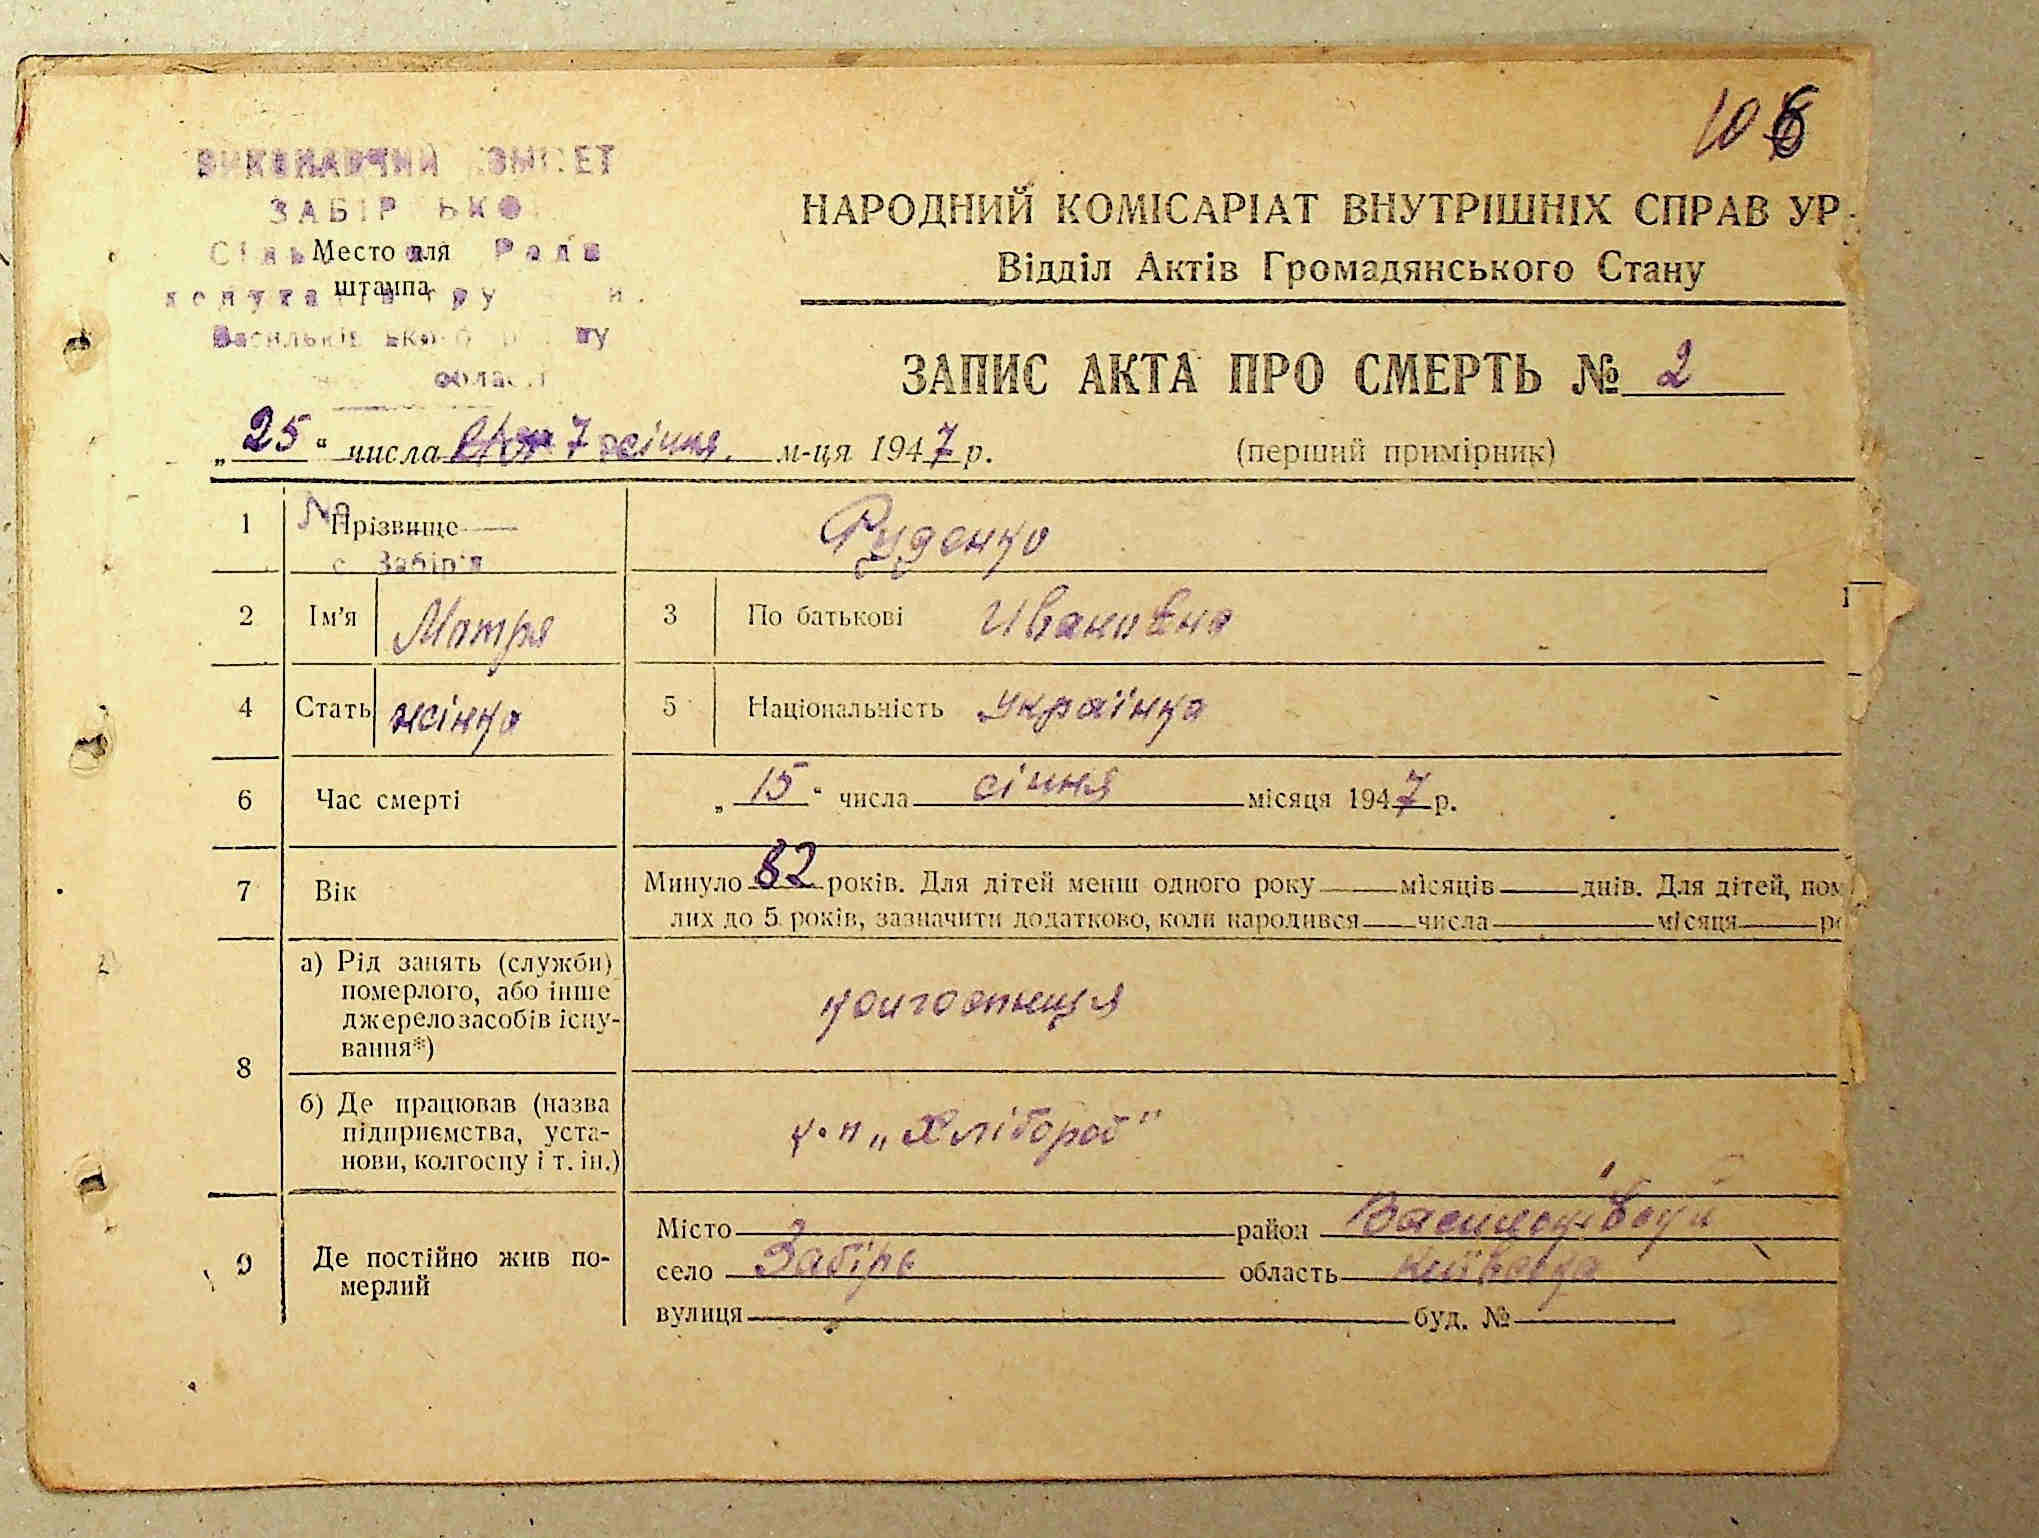 106
ВИКОНАВЧИЙ КОМІТЕТ
ЗАБІРСЬКОЇ
Сільської Ради
Место для
штампа
Васильківського району
області
НАРОДНИЙ КОМІСАРІАТ ВНУТРІШНІХ СПРАВ УР
Відділ Актів Громадянського Стану
ЗАПИС АКТА ПРО СМЕРТЬ № 2
„25“ числа січня м-ця 1947 р. (перший примірник)
1 Прізвище Руденко
№
с. Забір'я
2 Ім'я Мотря 3 По батькові Ивановна
4 Стать жінка 5 Національність українка
6 Час смерті „15“ числа січня місяця 1947 р.
7 Вік Минуло 82 років. Для дітей менш одного року місяців днів. Для дітей, пом
лих до 5 років, зазначити додатково, коли народився числа місяця ро
8 а) Рід занять (служби)
померлого, або інше
джерело засобів існу-
вання*)
колгоспниця
б) Де працював (назва
підприємства, уста-
нови, колгоспу і т. ін.)
к-п „Хлібороб"
9 Де постійно жив по-
мерлий
Місто район Васильківський
село Забірь область київська
вулиця буд. №